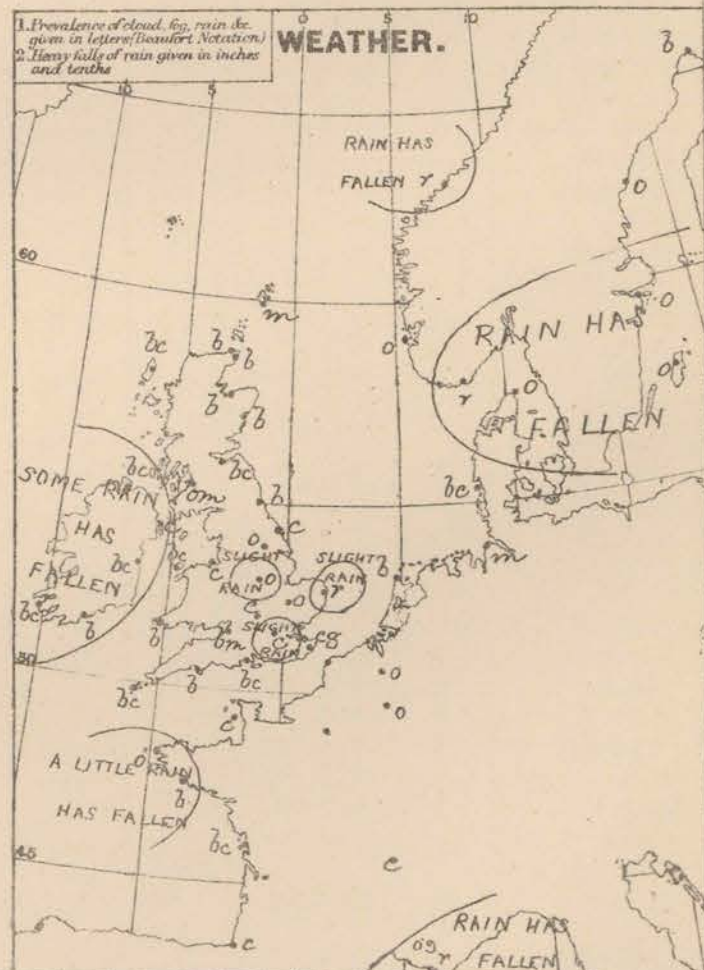 1. Prevalence of cloud, fog, rain &c.
given in letters (Beaufort Notation)
2. Heavy falls of rain given in inches
and tenths
WEATHER.
10 5 0 5 10
b
RAIN HAS
FALLEN r
o
60
m
o
bc b
b
b
b
RAIN HA
FALLEN
r
o
o
o
bc
bc
b
c
SOME RAIN
HAS
FALLEN
bc
om
c
bc
c
bc
b
o
SLIGHT
RAIN
o
c
c
o
SLIGHT
RAIN
r
b
m
SLIGHT
c
RAIN
cg
b
bm
50
bc
b
bc
c
o
o
o
A LITTLE RAIN
HAS FALLEN
b
bc
45
c
c
RAIN HAS
FALLEN
og
r